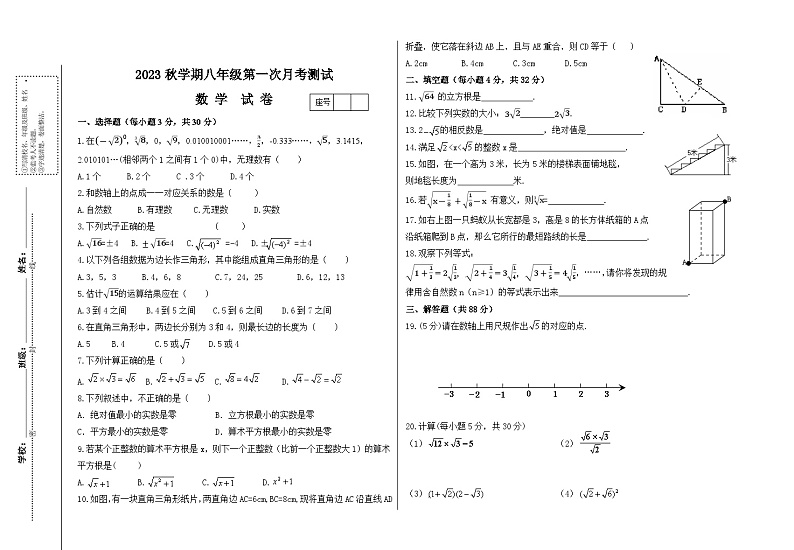 2023 秋学期八年级第一次月考测试
数 学 试 卷
座号
一、选择题（每小题 3 分，共 30 分）
1.在(−√2)⁰，∛8，0，√9，0.010010001……，π/2，-0.333……，√5，3.1415，
2.010101…(相邻两个 1 之间有 1 个 0)中，无理数有（ ）
A.1 个 B.2 个 C.3 个 D.4 个
2.和数轴上的点成一一对应关系的数是（ ）
A.自然数 B.有理数 C.无理数 D.实数
3.下列式子正确的是 （ ）
A.√16=±4 B.±√16=4 C.√(-4)² =-4 D.±√(-4)² =±4
4.以下各组数据为边长作三角形，其中能组成直角三角形的是（ ）
A.3，5，3 B.4，6，8 C.7，24，25 D.6，12，13
5.估计√15的运算结果应在（ ）
A.3 到 4 之间 B.4 到 5 之间 C.5 到 6 之间 D.6 到 7 之间
6.在直角三角形中，两边长分别为 3 和 4，则最长边的长度为（ ）
A.5 B.4 C.5 或√7 D.5 或 4
7.下列计算正确的是（ ）
A.√2×√3=√6 B.√2+√3=√5 C.√8=4√2 D.√4−√2=√2
8.下列叙述中，不正确的是（ ）
A．绝对值最小的实数是零 B．立方根最小的实数是零
C．平方最小的实数是零 D．算术平方根最小的实数是零
9.若某个正整数的算术平方根是 x，则下一个正整数（比前一个正整数大 1）的算术
平方根是( )
A.√x+1 B.√(x²+1) C.√(x+1) D.x²+1
10.如图,有一块直角三角形纸片,两直角边 AC=6cm,BC=8cm,现将直角边 AC 沿直线 AD
折叠，使它落在斜边 AB 上，且与 AE 重合，则 CD 等于（ ）
A.2cm B.4cm C.3cm D.5cm
A
E
C D B
二、填空题（每小题 4 分，共 32 分）
11.√64 的立方根是____________.
12.比较下列实数的大小，3√2________2√3.
13.2−√5的相反数是______________，绝对值是______________.
14.满足√2<x<√5的整数 x 是________________________.
15.如图，在一个高为 3 米，长为 5 米的楼梯表面铺地毯，
则地毯长度为____________米.
5米
3米
16.若√(x−1/8)+√(1/8−x) 有意义，则∛x=______________.
17.如右上图一只蚂蚁从长宽都是 3，高是 8 的长方体纸箱的 A 点
沿纸箱爬到 B 点，那么它所行的最短路线的长是______________.
B
A
18.观察下列等式：
√(1+1/3)=2√(1/3)，√(2+1/4)=3√(1/4)，√(3+1/5)=4√(1/5)，……，请你将发现的规
律用含自然数 n（n≥1）的等式表示出来____________________________.
三、解答题（共 88 分）
19.(5 分)请在数轴上用尺规作出√5的对应的点.
-3 -2 -1 0 1 2 3
20.计算(每小题 5 分，共 30 分)
（1）√12×√3−5 （2）(√6×√3)/√2
（3）(1+√2)(2−√3) （4）(√2+√6)²
学校：
班级：
姓名：
密
封
线